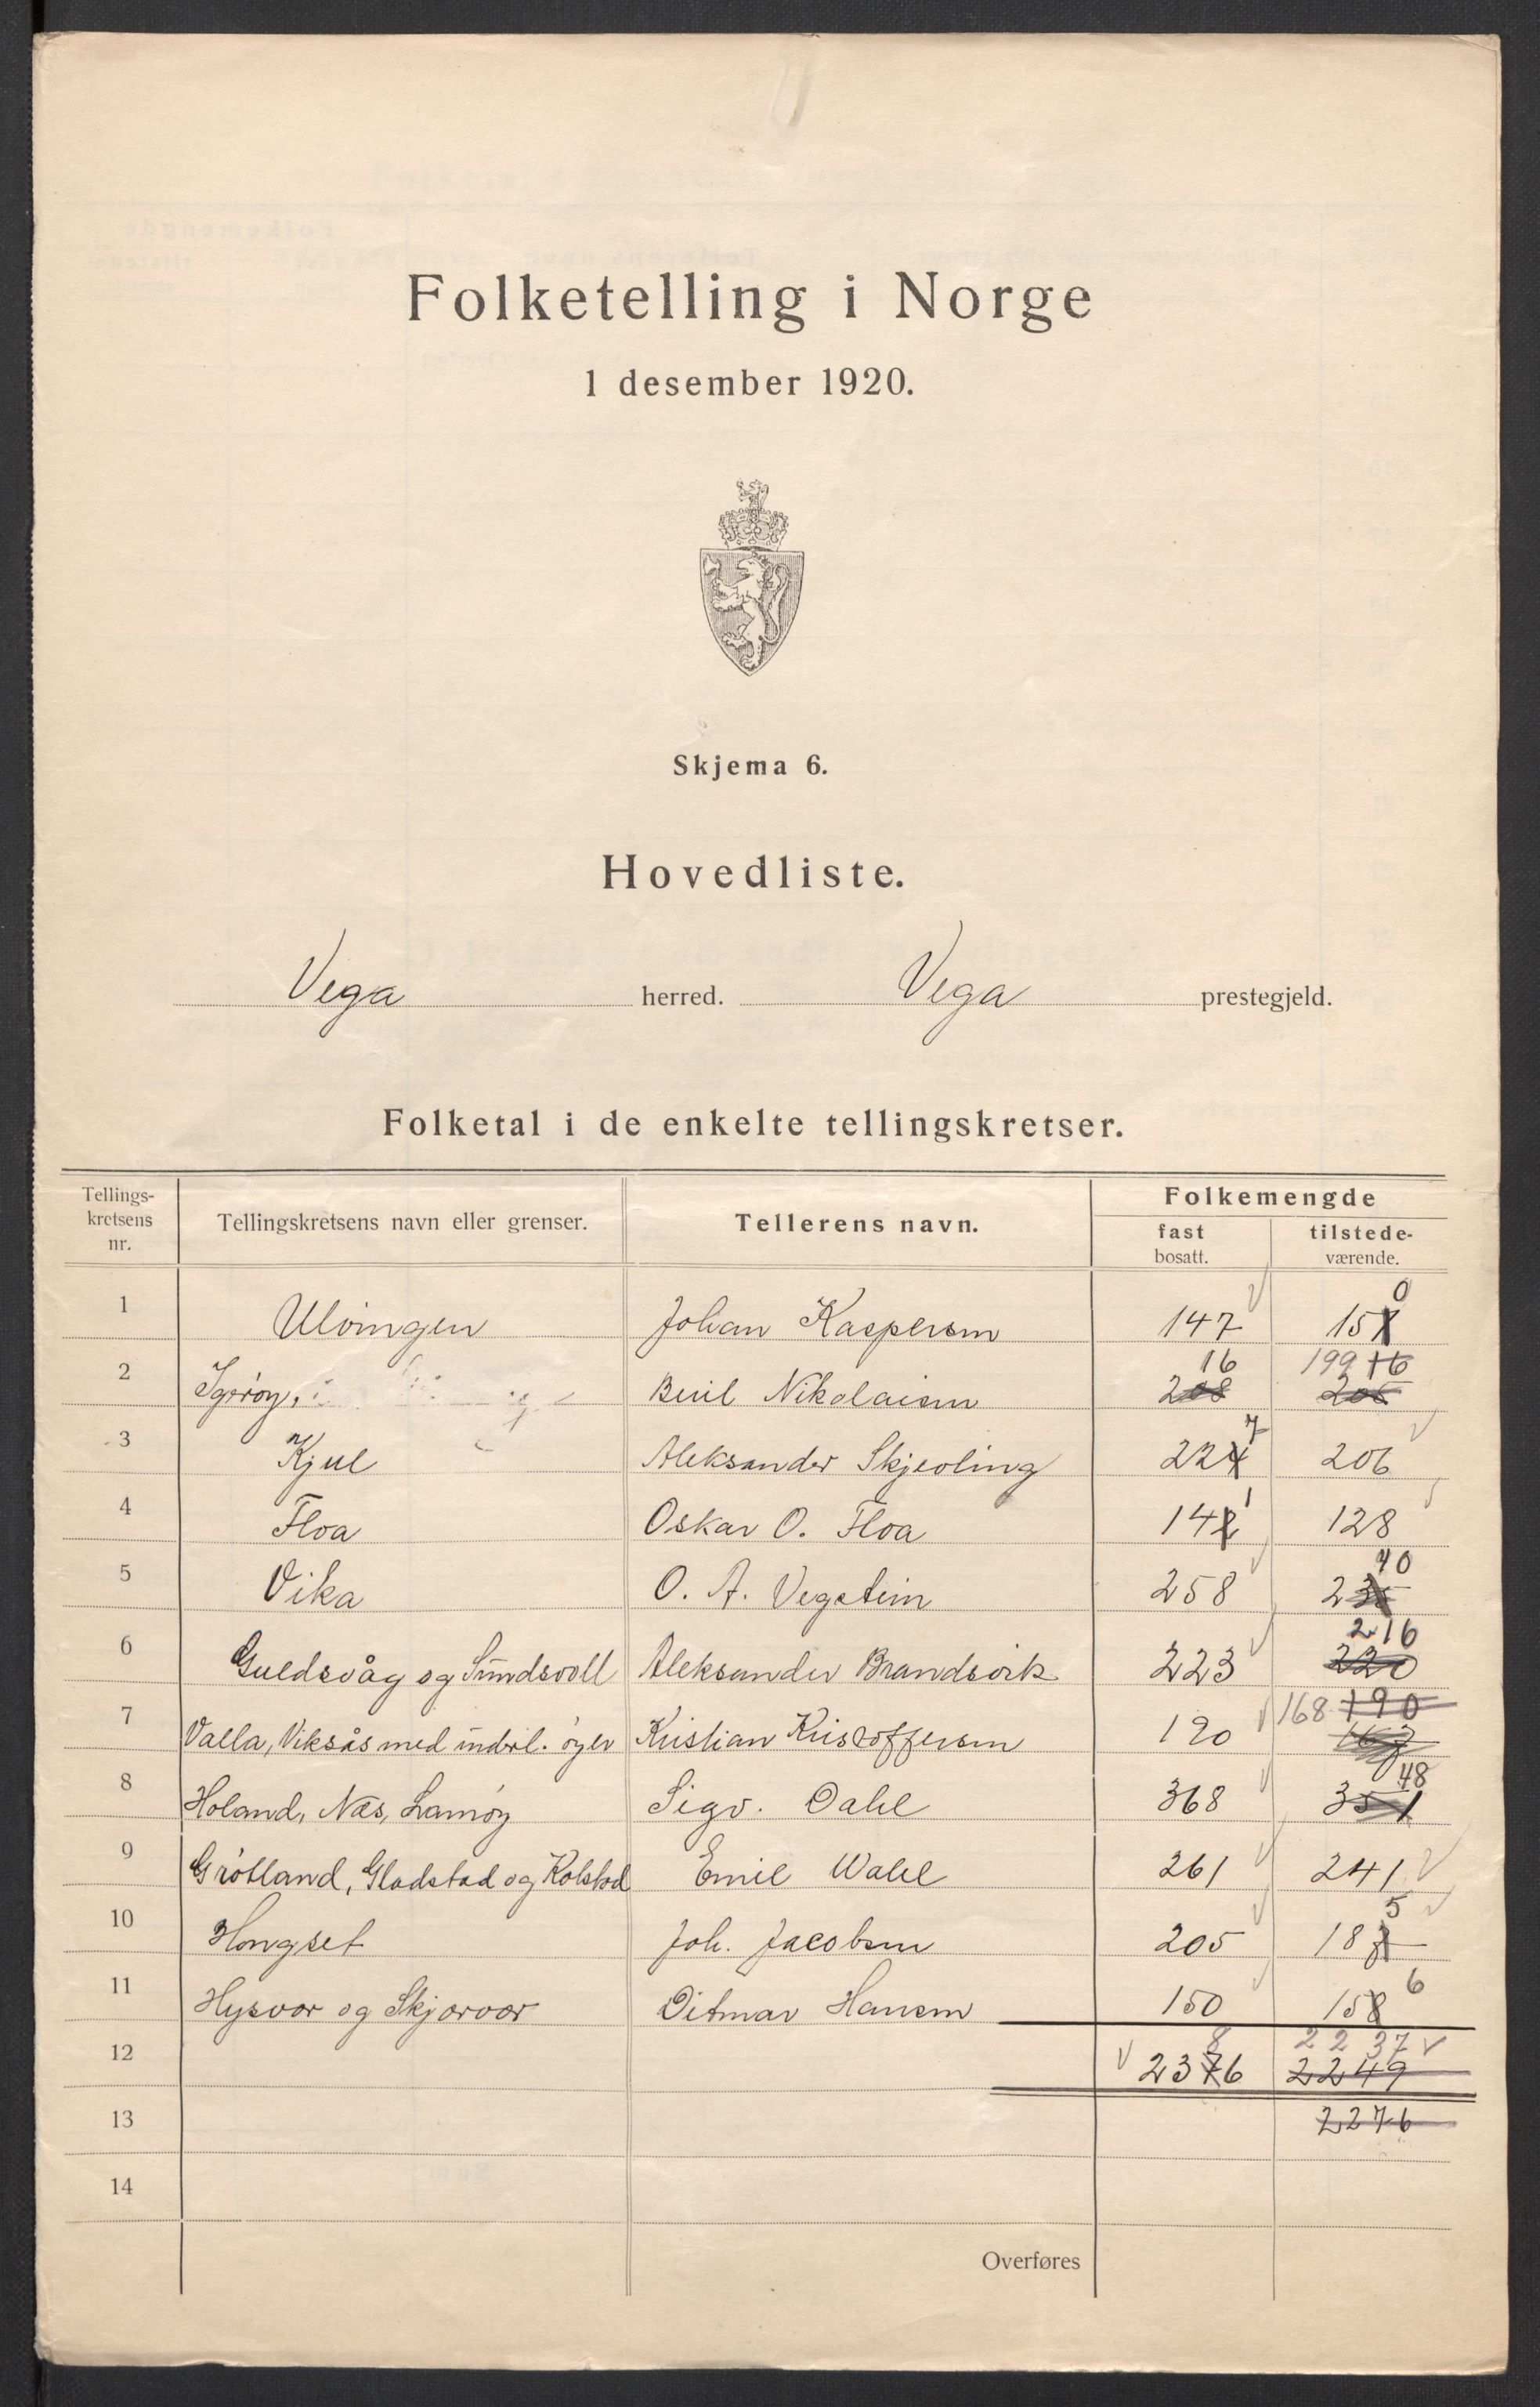 Folketelling i Norge
1 desember 1920.
Skjema 6.
Hovedliste.
Vega herred. Vega prestegjeld.
Folketal i de enkelte tellingskretser.
Tellings-kretsens nr. Tellingskretsens navn eller grenser. Tellerens navn. Folkemengde fast bosatt. tilstede-værende.
1 Ulvingen Johan Kaspersen 147 151 0
2 Igerøy, Beril Nikolaisen 208 16 206 199 16
3 Kjul Aleksander Skjevling 224 7 206
4 Floa Oskar O. Floa 142 1 128
5 Vika O. A. Vegstein 258 235 40
6 Guldsvåg og Sundsvoll Aleksander Brandsvik 223 220 216
7 Valla, Viksås med indril. øyer Kristian Kristoffersen 190 168 190
8 Holand, Næs, Lamøy Sigv. Dahl 368 351 48
9 Grøtland, Gladstad og Kolstad Emil Wahl 261 241
10 Hongset Joh. Jacobsen 205 187 5
11 Hysvær og Skjærvær Ditmar Hansen 150 158 6
12 2376 8 2249 2237
13 2276
14
Overføres